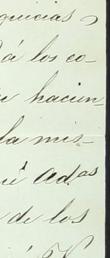 quicias
á los co-
hacien-
la mis-
Adas
de los